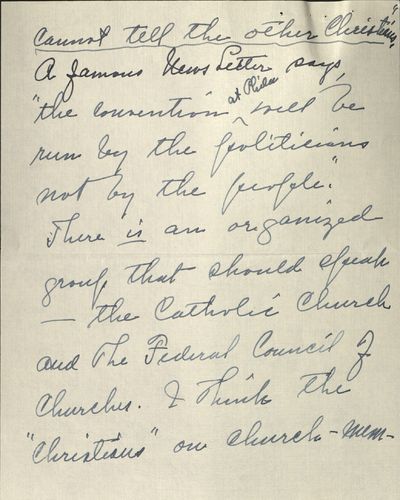 cannot tell the other Christians."
A famous News Letter says,
"the convention at Phila will be
run by the politicians
not by the people."
There is an organized
group that should speak
— the Catholic Church
and The Federal Council of
Churches. I think the
"Christians" on church-mem-